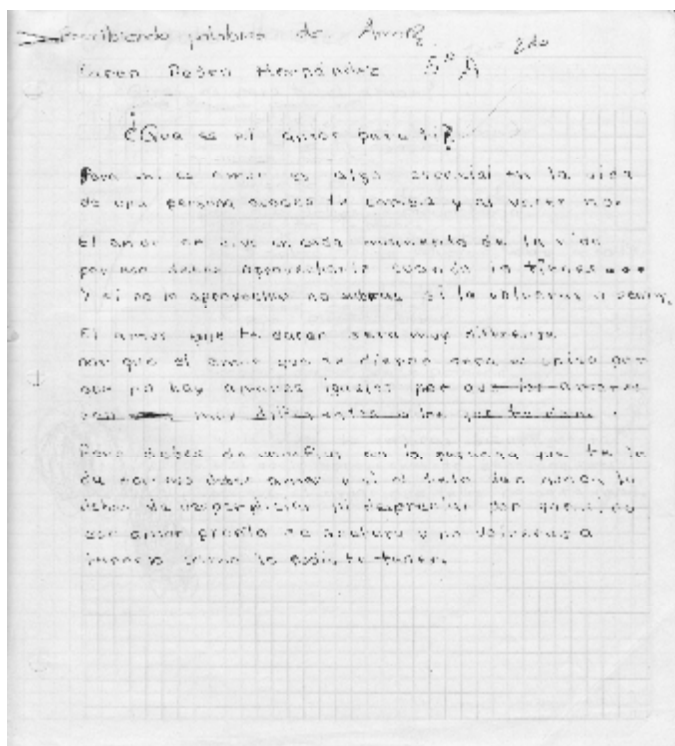 Escribiendo palabras de Amor
2do
Karen Hernández 5° A
¿Que es el amor para ti?
Para mi es amor es algo esencial en la vida
de una persona te cambia y al
El amor se vive en cada momento de la vida
por eso debes aprovecharlo cuando lo tienes...
Y si no lo aprovechas no sabras si lo volveras a
El amor que te daran sera muy diferente
por que el amor que te dieron sera el unico por
que no hay amores iguales por que los amores
son muy diferentes a los que te dan.
Pero debes de confiar en la persona que te lo
da por eso amor y si te lo dan nunca lo
debes de desperdiciar ni despreciar por que
ese amor y no volveras a
como lo podiste tener.